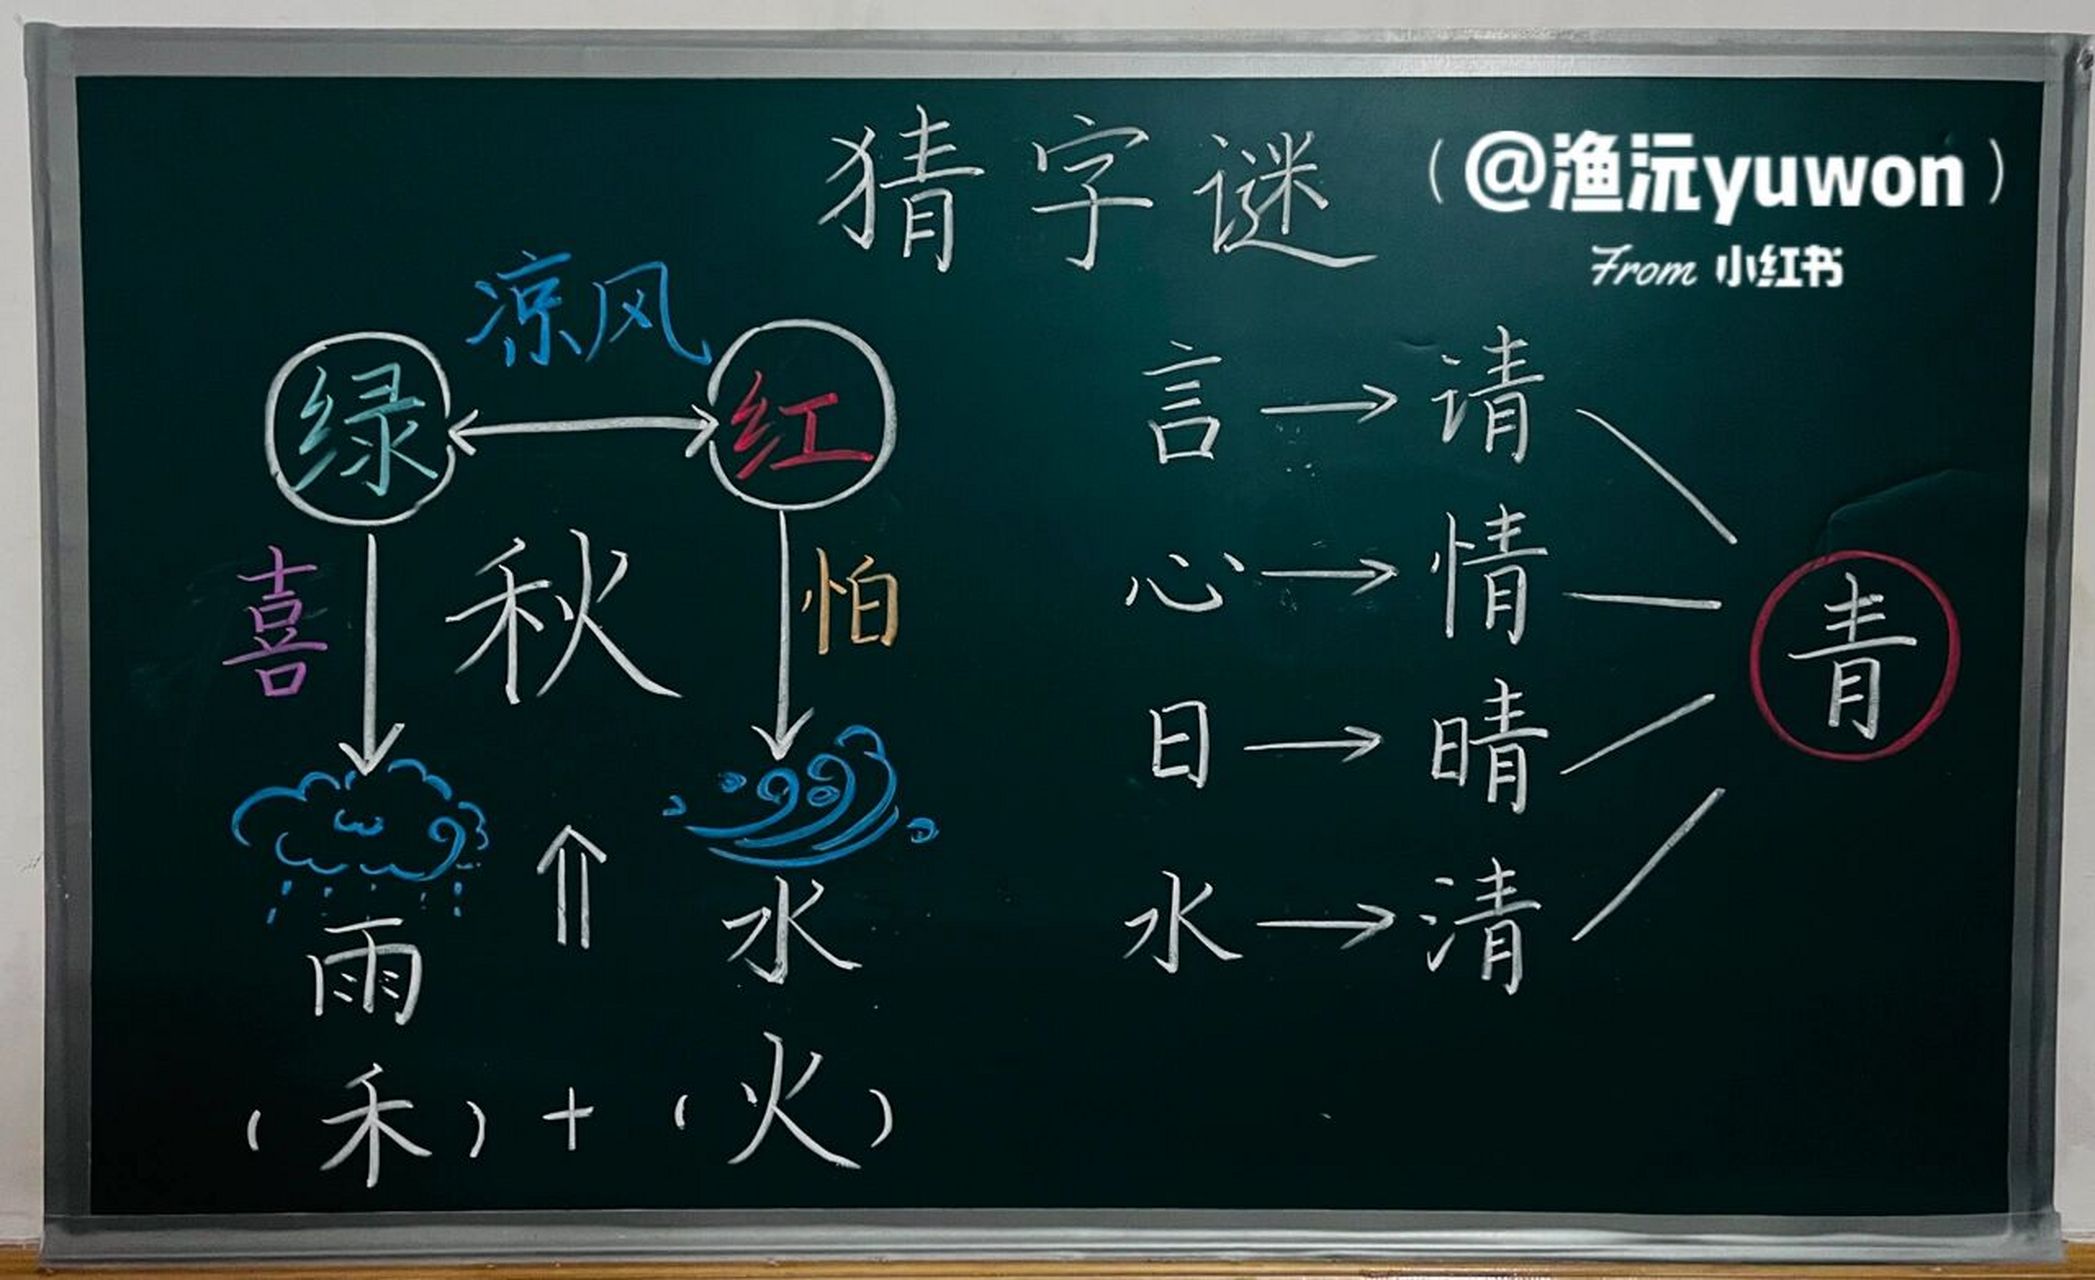 猜字谜 (@渔沅yuwon)
From 小红书
凉风
绿 红
喜 秋 怕
雨 水
(禾)+(火)
言 → 请
心 → 情
日 → 晴
水 → 清
青